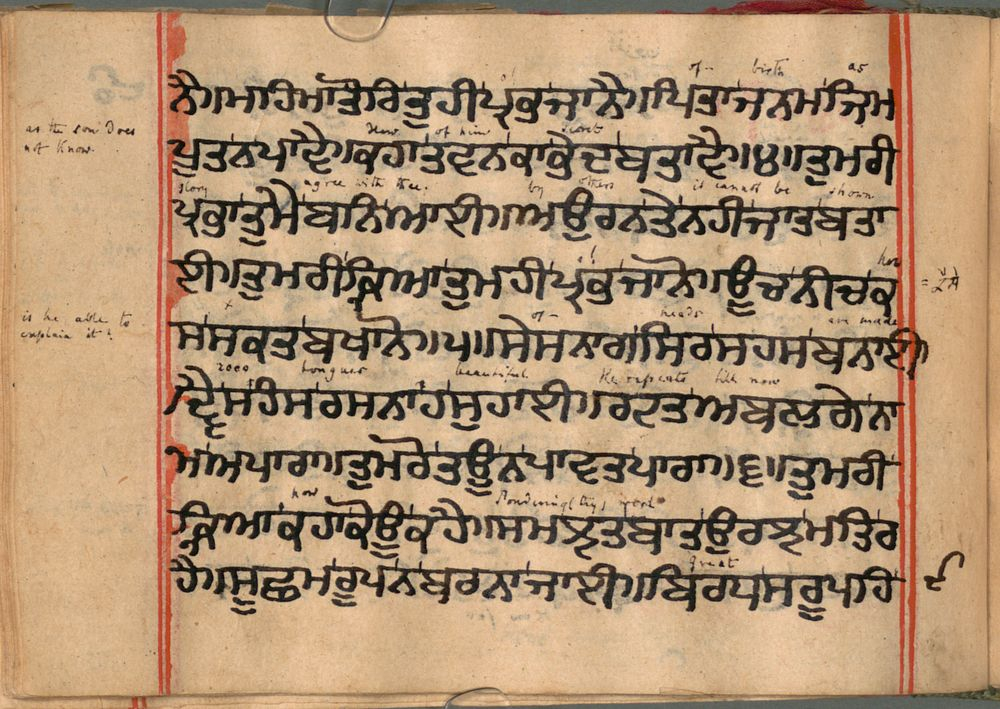 of birth as
ਨੈ॥ਮਹਿਮਾਤੋਰਿਤੁਹੀਪ੍ਰਭੁਜਾਨੈ॥ਪਿਤਾਜਨਮਜਿਮ
as the son does
not know.
How of him secret
ਪੂਤਨਪਾਵੈ॥ਕਹਾਤਵਨਕਾਭੇਦਬਤਾਵੈ॥੪॥ਤੁਮਰੀ
glory agree with thee. by others it cannot be shown
ਪ੍ਰਭਾਤੁਮੈਬਨਿਆਈ॥ਅਉਰਨਤੇਨਹੀਜਾਤਬਤਾ
how
ਈ॥ਤੁਮਰੀਕ੍ਰਿਆਤੁਮਹੀਪ੍ਰਭੁਜਾਨੋ॥ਊਚਨੀਚਕ
is he able to
explain it?
of heads are made
ਸਸਕਤਬਖਾਨੋ॥੫॥ਸੇਸਨਾਗਸਿਰਸਹਸਬਨਾਈ
2000 tongues beautiful He repeats till now
ਦ੍ਵੈਸਹੰਸਰਸਨਾਹਸੁਹਾਈ॥ਰਟਤਅਬਲਗੇਨਾ
ਮਅਪਾਰਾ॥ਤੁਮਰੋਤਊਨਪਾਵਤਪਾਰਾ॥੬॥ਤੁਮਰੀ
how Pondering thy
ਕ੍ਰਿਆਕਹਾਕੋਊਕਹੈ॥ਸਮਝਤਬਾਤਉਰਝਮਤਿਰ
great
ਹੈ॥ਸੂਛਮਰੂਪਨਬਰਨਾਜਾਈ॥ਬਿਰਧਸਰੂਪਹਿ